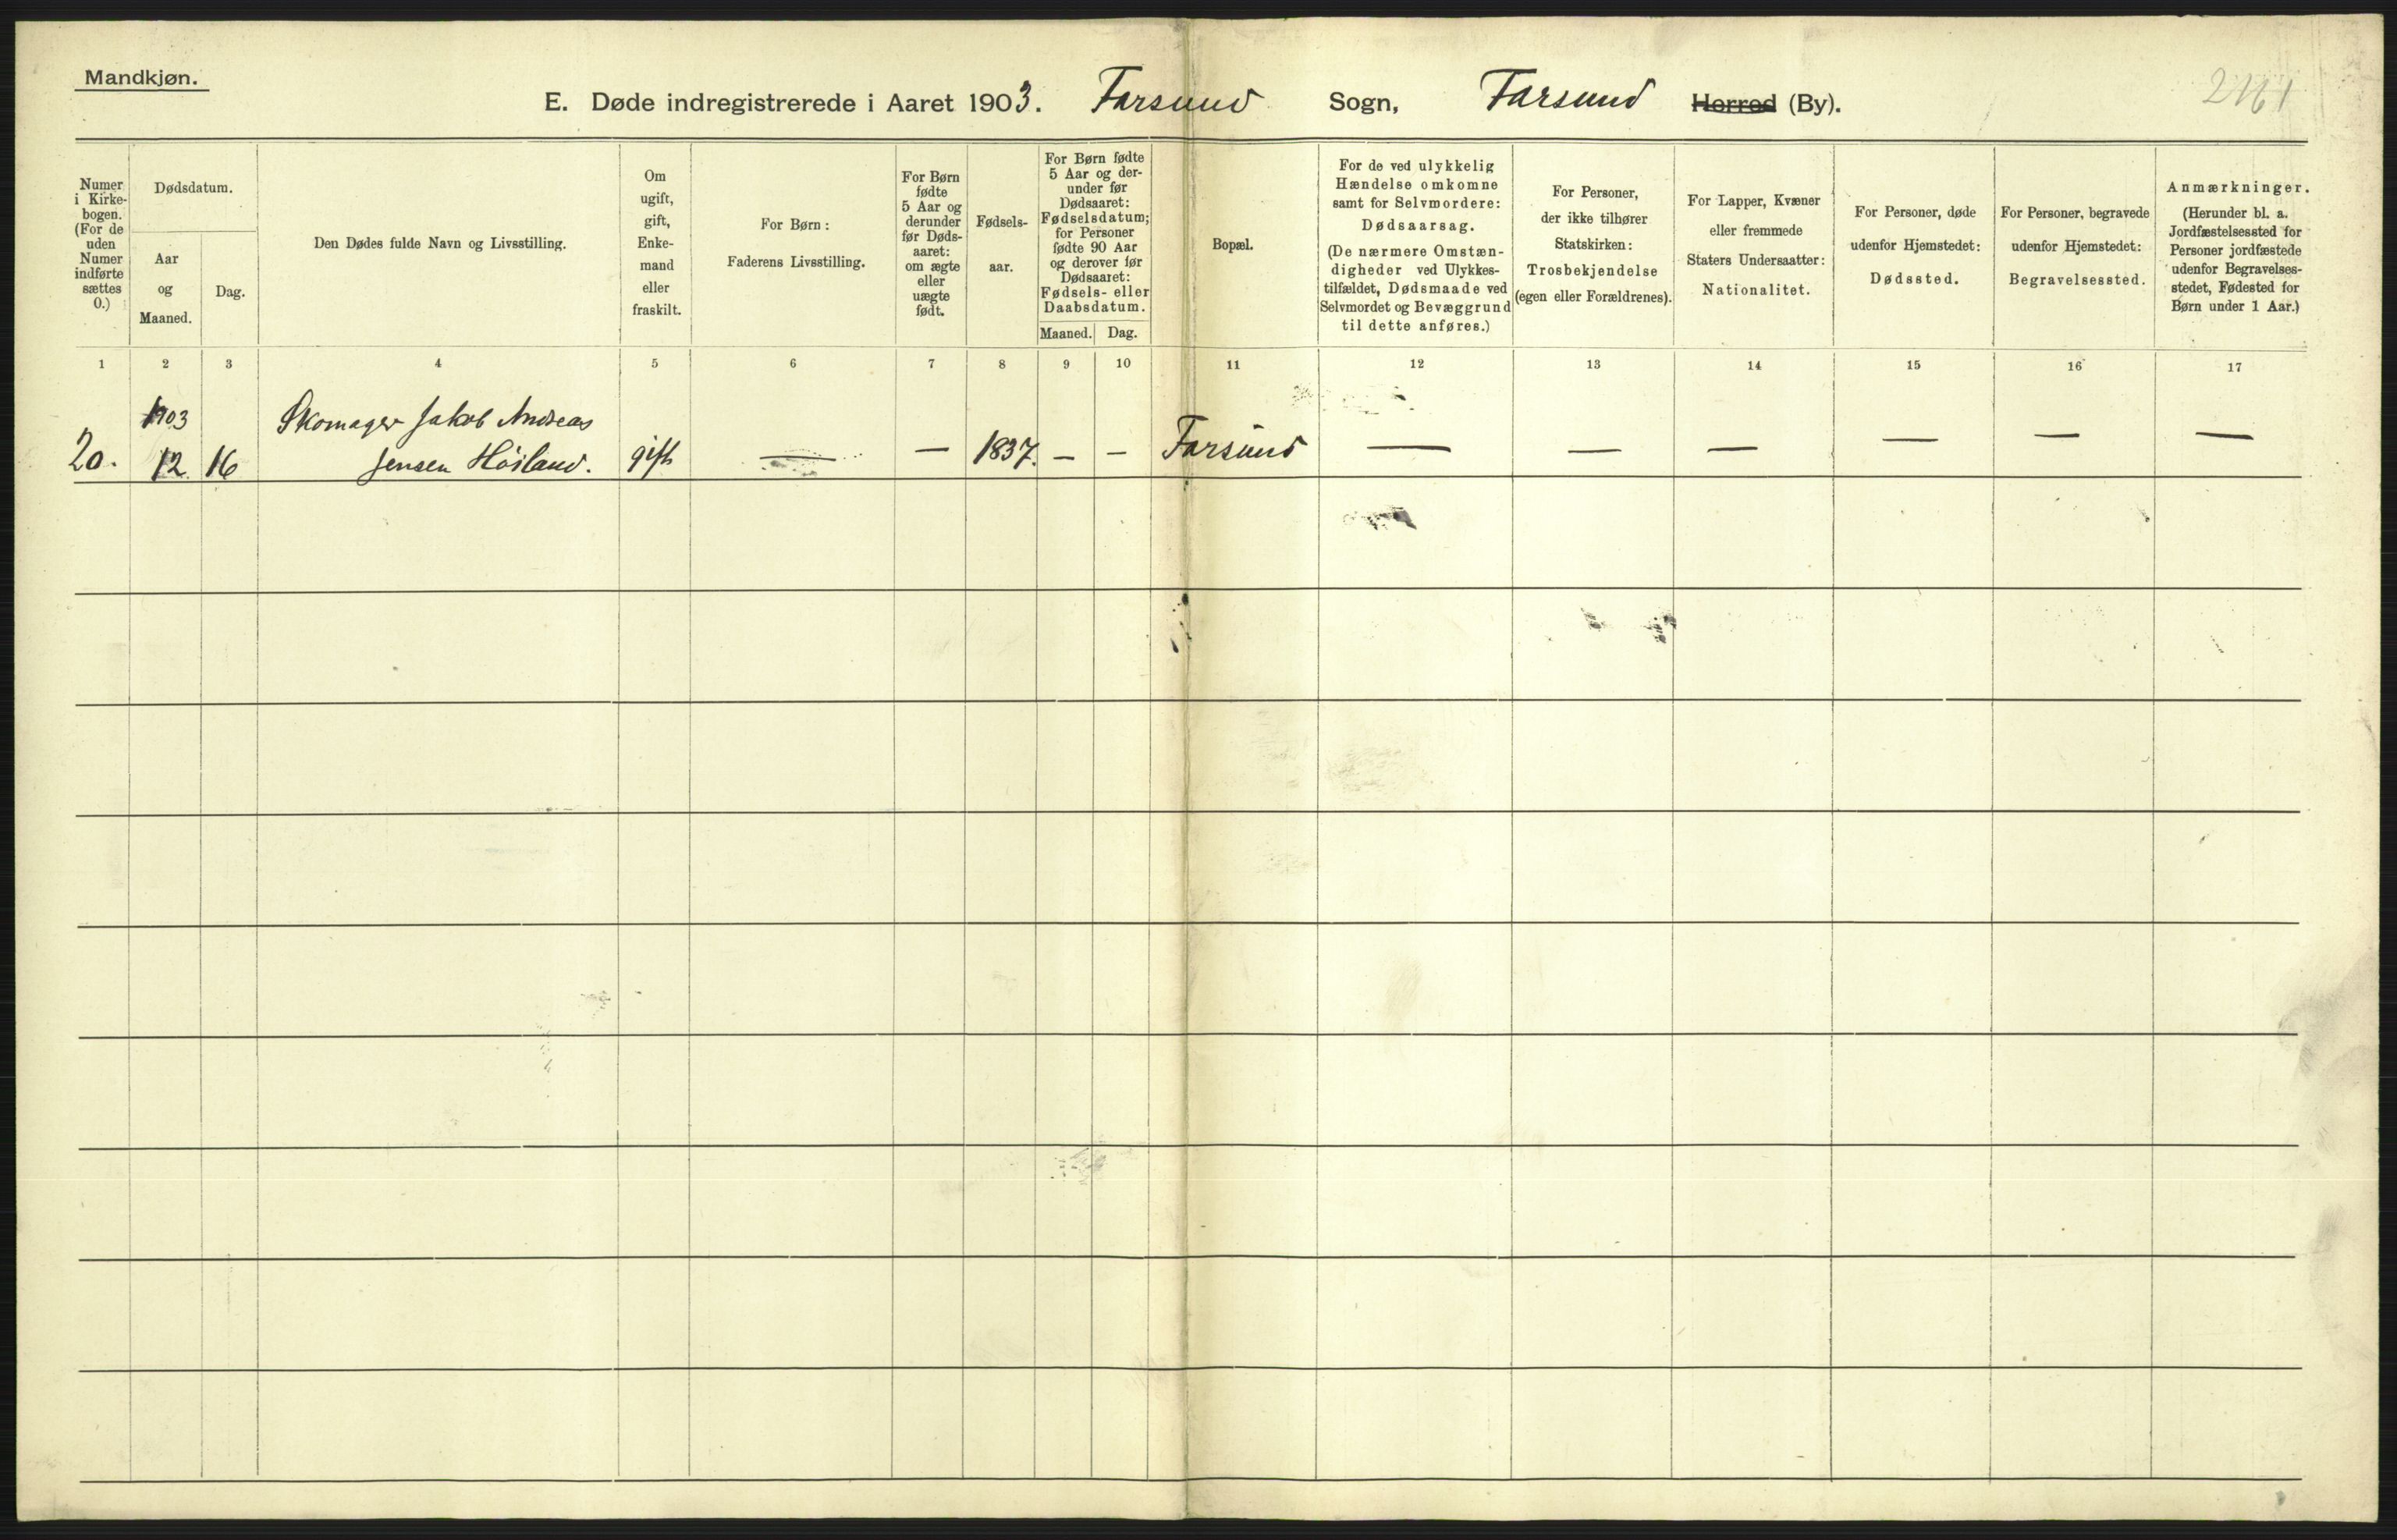 Mandkjøn.
E. Døde indregistrerede i Aaret 1903. Farsund Sogn, Farsund Herred (By).
Numer i Kirke-
bogen.
(For de
uden
Numer
indførte
sættes
0.)
Dødsdatum.
Aar
og
Maaned.
Dag.
Den Dødes fulde Navn og Livsstilling.
Om
ugift,
gift,
Enke-
mand
eller
fraskilt.
For Børn:
Faderens Livsstilling.
For Børn
fødte
5 Aar og
derunder
før Døds-
aaret:
om ægte
eller
uægte
født.
Fødsels-
aar.
For Børn fødte
5 Aar og der-
under før
Dødsaaret:
Fødselsdatum;
for Personer
fødte 90 Aar
og derover før
Dødsaaret:
Fødsels- eller
Daabsdatum.
Maaned. Dag.
Bopæl.
For de ved ulykkelig
Hændelse omkomne
samt for Selvmordere:
Dødsaarsag.
(De nærmere Omstæn-
digheder ved Ulykkes-
tilfældet, Dødsmaade ved
Selvmordet og Bevæggrund
til dette anføres.)
For Personer,
der ikke tilhører
Statskirken:
Trosbekjendelse
(egen eller Forældrenes).
For Lapper, Kvæner
eller fremmede
Staters Undersaatter:
Nationalitet.
For Personer, døde
udenfor Hjemstedet:
Dødssted.
For Personer, begravede
udenfor Hjemstedet:
Begravelsessted.
Anmærkninger.
(Herunder bl. a.
Jordfæstelsessted for
Personer jordfæstede
udenfor Begravelses-
stedet, Fødested for
Børn under 1 Aar.)
1 2 3 4 5 6 7 8 9 10 11 12 13 14 15 16 17
1903 Skomager Jakob Andreas
20. 12. 16 Jensen Höiland. gift — — 1837. — — Farsund — — — — — —